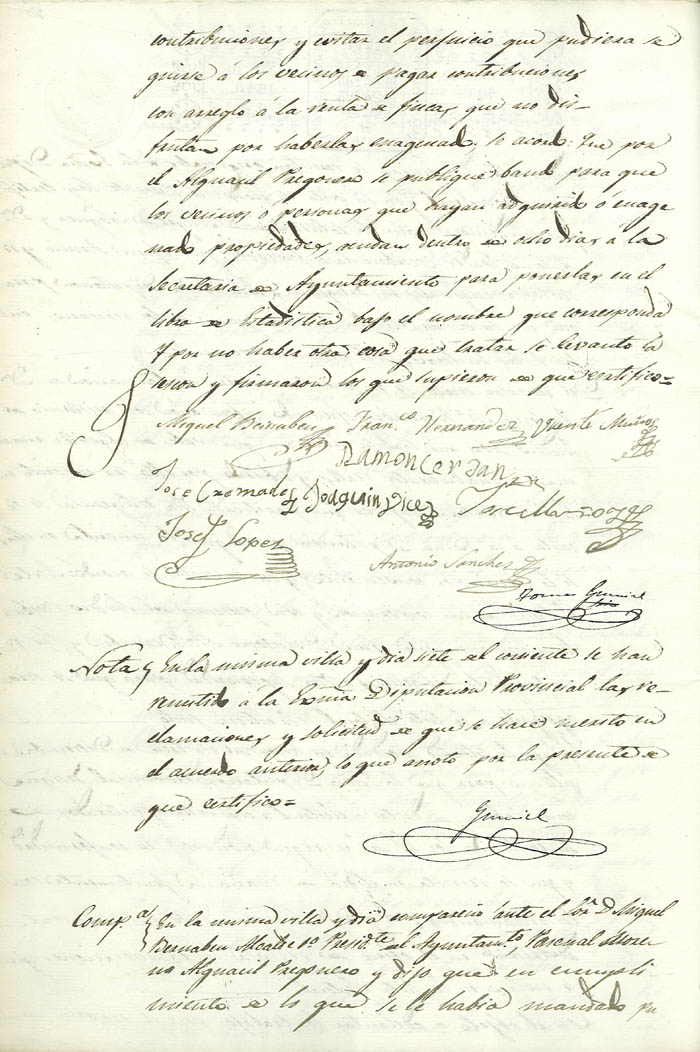 contribuciones y evitar el perjuicio que pudiera se
guirse á los vecinos de pagar contribuciones
con arreglo á la renta de fincas que no dis-
frutan por haberlas enagenado, se acordó: Que por
el Alguacil Pregonero se publique bando para que
los vecinos ó personas que hayan adquirido ó enage
nado propiedades, acudan dentro de ocho dias a la
Secretaria de Ayuntamiento para ponerlas en el
libro de Estadistica bajo el nombre que corresponda
Y por no haber otra cosa que tratar se levantó la
sesion y firmaron los que supieron de que certifico=
Miguel Bernabeu Fran.co Hernandez Vicente Muñoz
Ramon Cerdan
Jose Cremades Joaquin Vicedo Jose Muñoz
Josef Lopez
Antonio Sanchez
Tomas Gumiel
Srio
Nota En la misma villa y dia siete del corriente se han
remitido á la Exma Diputacion Provincial las re-
clamaciones y solicitud de que se hace merito en
el acuerdo anterior, lo que anoto por la presente de
que certifico=
Gumiel
Comp.a En la misma villa y dia compareció ante el Sor. D. Miguel
Bernabeu Alcalde 1o Presidte del Ayuntamto, Pascual More
no Alguacil Pregonero y dijo que en cumpli-
miento de lo que se le habia mandado pu